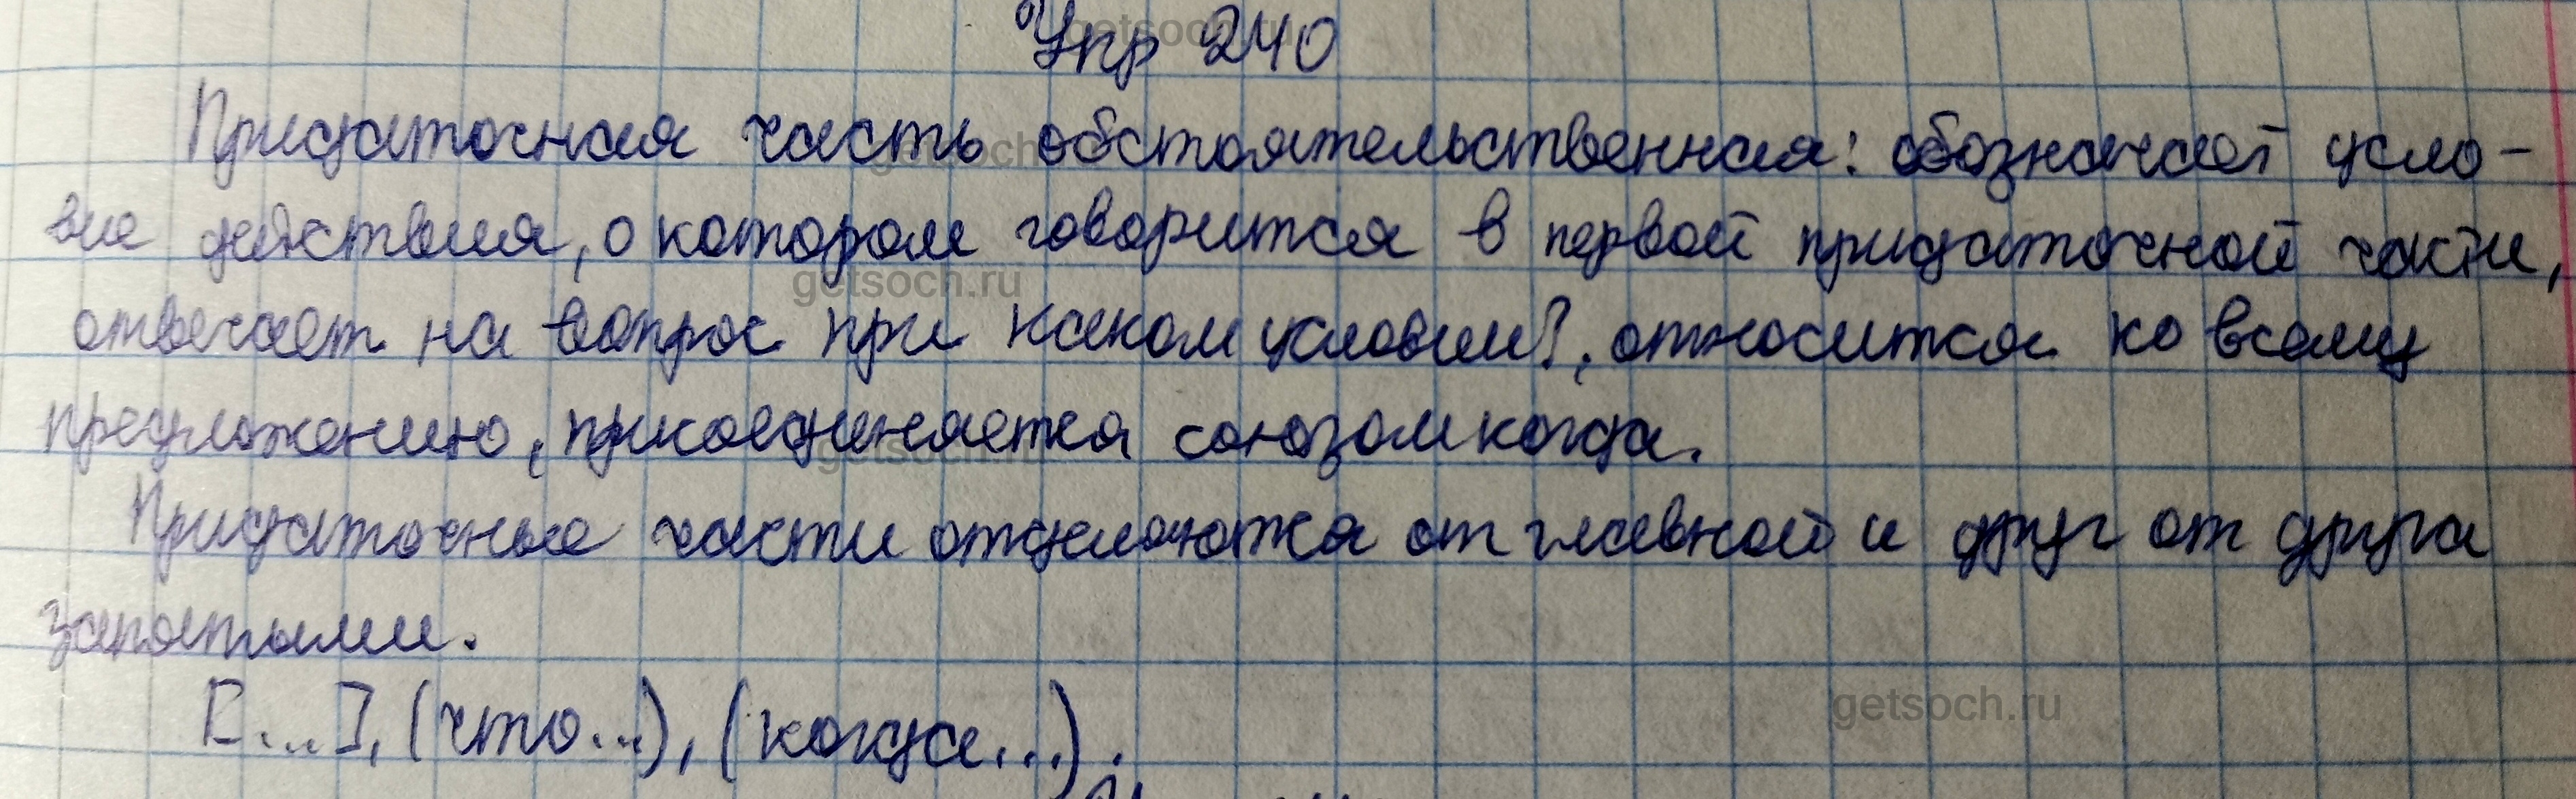 Упр 240
Придаточная часть обстоятельственная: обозначает усло-
вие действия, о котором говорится в первой придаточной части,
отвечает на вопрос при каком условии?, относится ко всему
предложению, присоединяется союзом когда.
Придаточные части отделяются от главной и друг от друга
запятыми.
[...], (что...), (когда...).
getsoch.ru
getsoch.ru
getsoch.ru
getsoch.ru
getsoch.ru